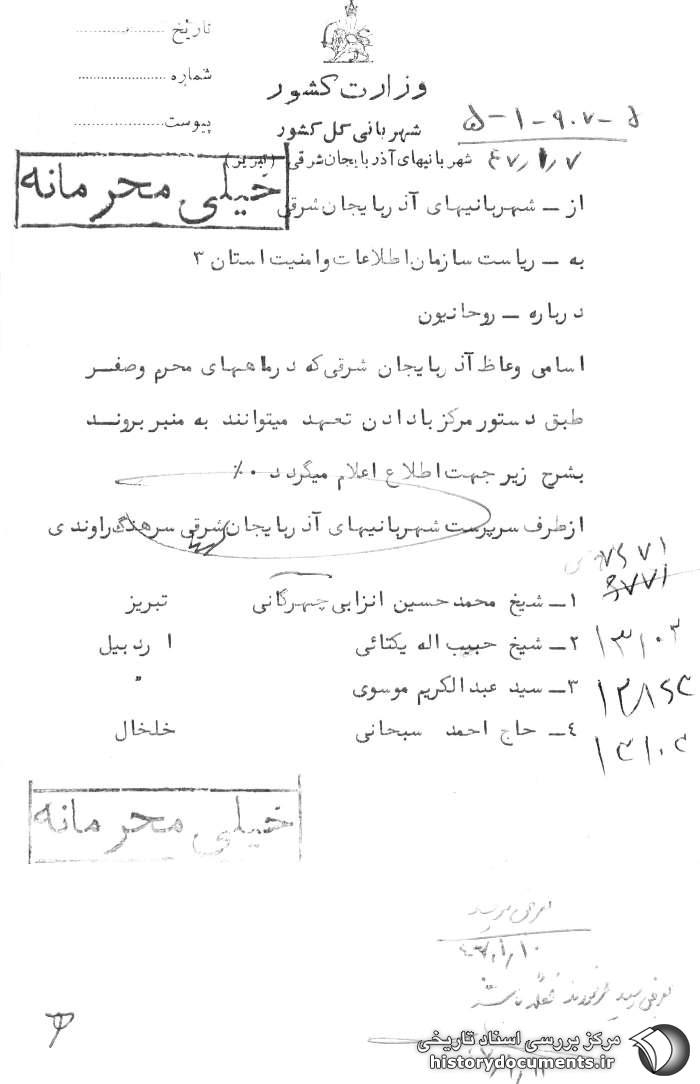 تاریخ
شماره
پیوست
وزارت کشور
شهربانی کل کشور
شهربانیهای آذربایجان شرقی (تبریز)
۵-۱-۹۰۷-۵
۴۷/۱/۷
خیلی محرمانه
از ــ شهربانیهای آذربایجان شرقی
به ــ ریاست سازمان اطلاعات و امنیت استان ۳
درباره ــ روحانیون
اسامی وعاظ آذربایجان شرقی که در ماههای محرم وصفر
طبق دستور مرکز با دادن تعهد میتوانند به منبر بروند
بشرح زیر جهت اطلاع اعلام میگردد ۰٪
از طرف سرپرست شهربانیهای آذربایجان شرقی سرهنگ راوندی
۱ــ شیخ محمد حسین انزابی چهرگانی تبریز
۲ــ شیخ حبیب اله یکتائی اردبیل
۳ــ سید عبدالکریم موسوی "
۴ــ حاج احمد سبحانی خلخال
خیلی محرمانه
مرکز بررسی اسناد تاریخی
historydocuments.ir